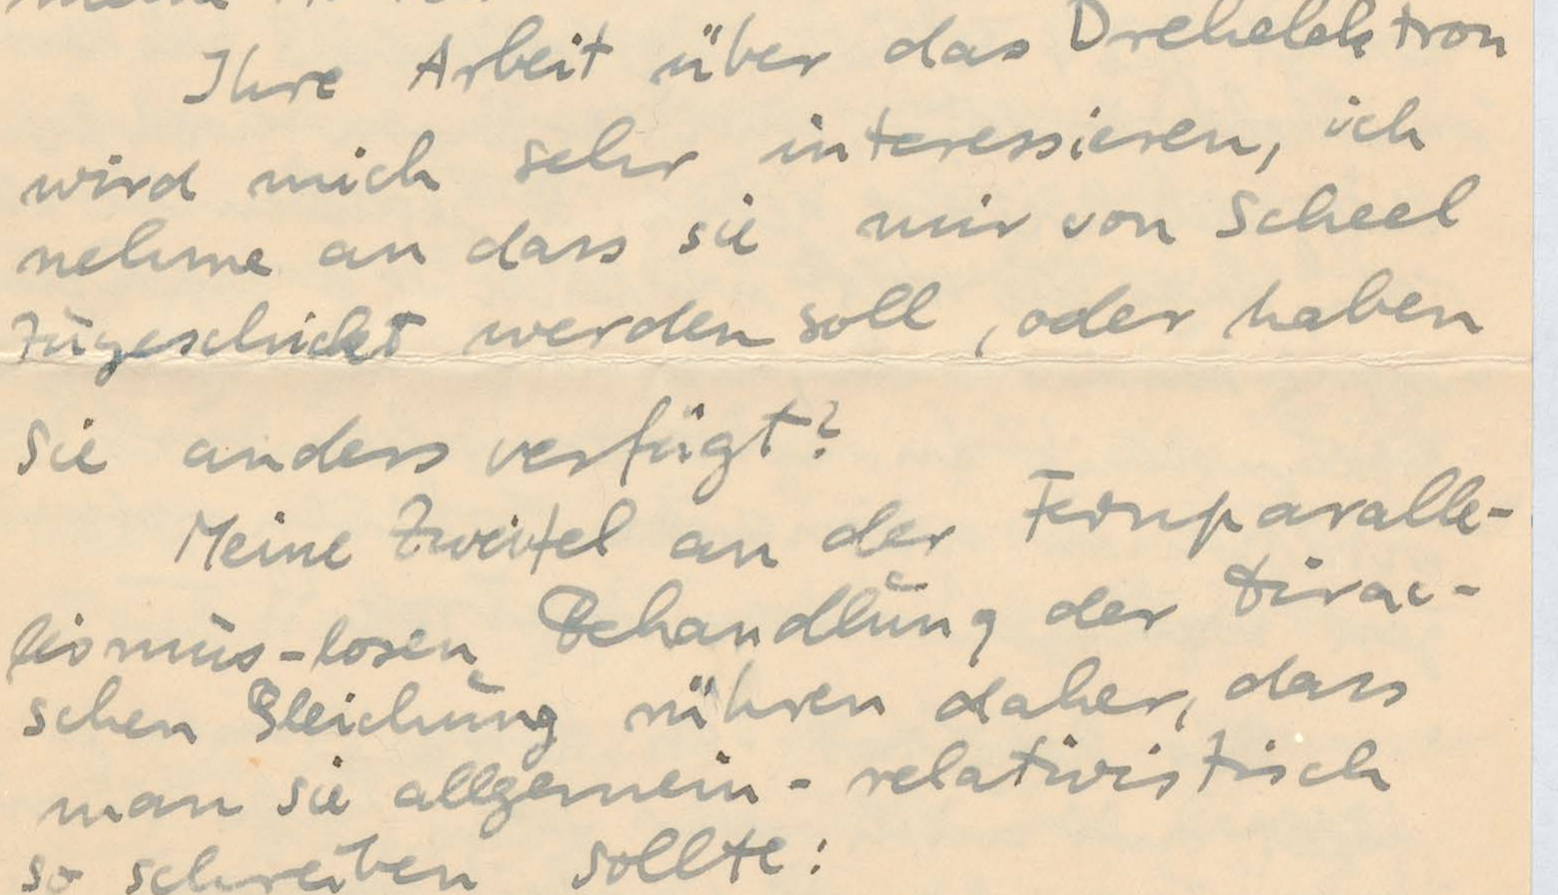 Ihre Arbeit über das Drehelektron
wird mich sehr interessieren, ich
nehme an dass sie mir von Scheel
zugeschickt werden soll, oder haben
Sie anders verfügt?
Meine Zweifel an der Fernparalle-
lismus-losen Behandlung der Dirac-
schen Gleichung rühren daher, dass
man sie allgemein-relativistisch
so schreiben sollte: